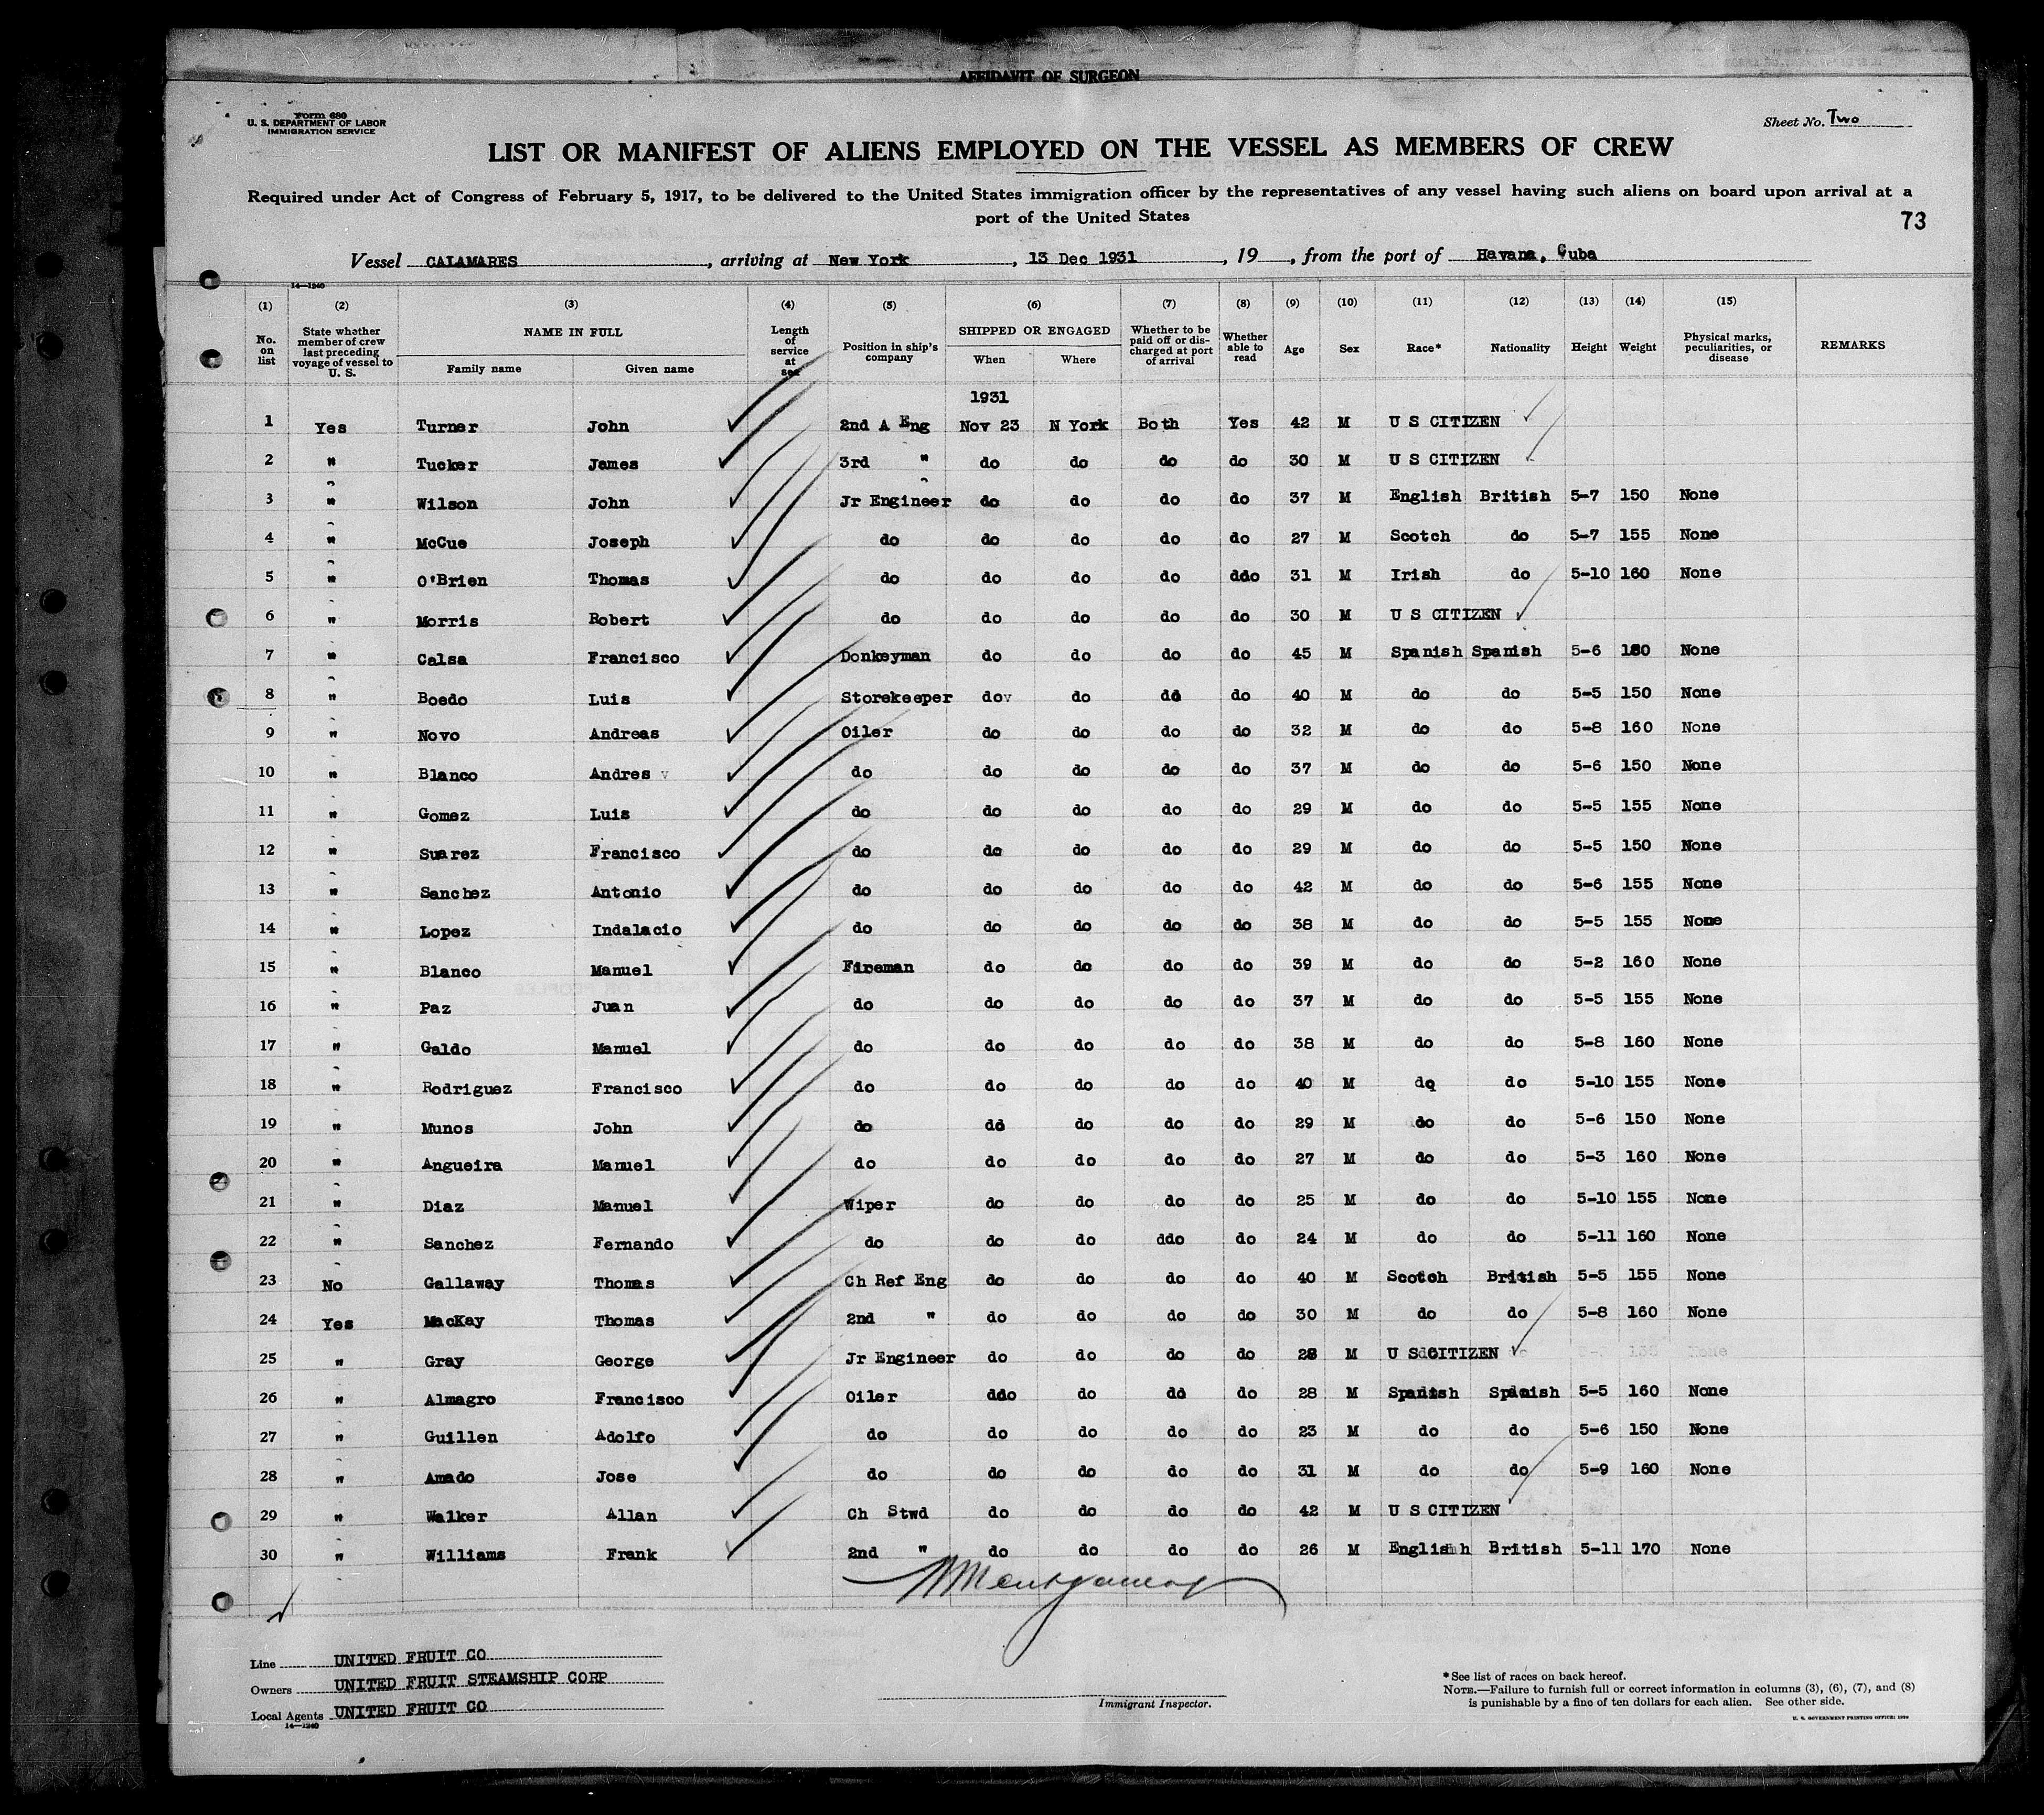 AFFIDAVIT OF SURGEON
Form 680
U. S. DEPARTMENT OF LABOR
IMMIGRATION SERVICE
Sheet No. Two
LIST OR MANIFEST OF ALIENS EMPLOYED ON THE VESSEL AS MEMBERS OF CREW
Required under Act of Congress of February 5, 1917, to be delivered to the United States immigration officer by the representatives of any vessel having such aliens on board upon arrival at a
port of the United States
73
Vessel CALAMARES, arriving at New York, 13 Dec 1931, 19, from the port of Havana, Cuba
14—1240
(1) (2) (3) (4) (5) (6) (7) (8) (9) (10) (11) (12) (13) (14) (15)
No. on list State whether member of crew last preceding voyage of vessel to U. S. NAME IN FULL Family name Given name Length of service at sea Position in ship's company SHIPPED OR ENGAGED When Where Whether to be paid off or discharged at port of arrival Whether able to read Age Sex Race* Nationality Height Weight Physical marks, peculiarities, or disease REMARKS
1931
1 Yes Turner John 2nd A Eng Nov 23 N York Both Yes 42 M U S CITIZEN
2 " Tucker James 3rd " do do do do 30 M U S CITIZEN
3 " Wilson John Jr Engineer do do do do 37 M English British 5-7 150 None
4 " McCue Joseph do do do do do 27 M Scotch do 5-7 155 None
5 " O'Brien Thomas do do do do ddo 31 M Irish do 5-10 160 None
6 " Morris Robert do do do do do 30 M U S CITIZEN
7 " Calsa Francisco Donkeyman do do do do 45 M Spanish Spanish 5-6 180 None
8 " Boedo Luis Storekeeper do do do do 40 M do do 5-5 150 None
9 " Novo Andreas Oiler do do do do 32 M do do 5-8 160 None
10 " Blanco Andres do do do do do 37 M do do 5-6 150 None
11 " Gomez Luis do do do do do 29 M do do 5-5 155 None
12 " Suarez Francisco do do do do do 29 M do do 5-5 150 None
13 " Sanchez Antonio do do do do do 42 M do do 5-6 155 None
14 " Lopez Indalacio do do do do do 38 M do do 5-5 155 None
15 " Blanco Manuel Fireman do do do do 39 M do do 5-2 160 None
16 " Paz Juan do do do do do 37 M do do 5-5 155 None
17 " Galdo Manuel do do do do do 38 M do do 5-8 160 None
18 " Rodriguez Francisco do do do do do 40 M do do 5-10 155 None
19 " Munos John do do do do do 29 M do do 5-6 150 None
20 " Angueira Manuel do do do do do 27 M do do 5-3 160 None
21 " Diaz Manuel Wiper do do do do 25 M do do 5-10 155 None
22 " Sanchez Fernando do do do ddo do 24 M do do 5-11 160 None
23 No Gallaway Thomas Ch Ref Eng do do do do 40 M Scotch British 5-5 155 None
24 Yes MacKay Thomas 2nd " do do do do 30 M do do 5-8 160 None
25 " Gray George Jr Engineer do do do do 28 M U S CITIZEN
26 " Almagro Francisco Oiler ddo do do do 28 M Spanish Spanish 5-5 160 None
27 " Guillen Adolfo do do do do do 23 M do do 5-6 150 None
28 " Amado Jose do do do do do 31 M do do 5-9 160 None
29 " Walker Allan Ch Stwd do do do do 42 M U S CITIZEN
30 " Williams Frank 2nd " do do do do 26 M English British 5-11 170 None
Line UNITED FRUIT CO
Owners UNITED FRUIT STEAMSHIP CORP
Local Agents UNITED FRUIT CO
14—1240
Immigrant Inspector.
*See list of races on back hereof.
NOTE.—Failure to furnish full or correct information in columns (3), (6), (7), and (8)
is punishable by a fine of ten dollars for each alien. See other side.